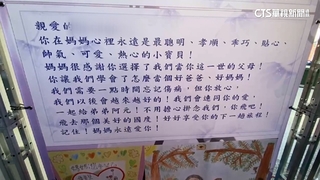 CTS華視新聞
親愛的
你在媽媽心裡永遠是最聰明、孝順、乖巧、貼心、
帥氣、可愛、熱心的小寶貝！
媽媽很感謝你選擇了我們當你這一世的父母！
你讓我們學會了怎麼當個好爸爸、好媽媽！
我們需要一點時間忘記傷痛，但你放心，
我們以後會越來越好的！我們會連同你的愛，
一起給弟弟阿元！不用擔心掛念我們，你飛吧！
飛去那個美好的國度！好好享受你的下一趟旅程！
記住！媽媽永遠愛你！